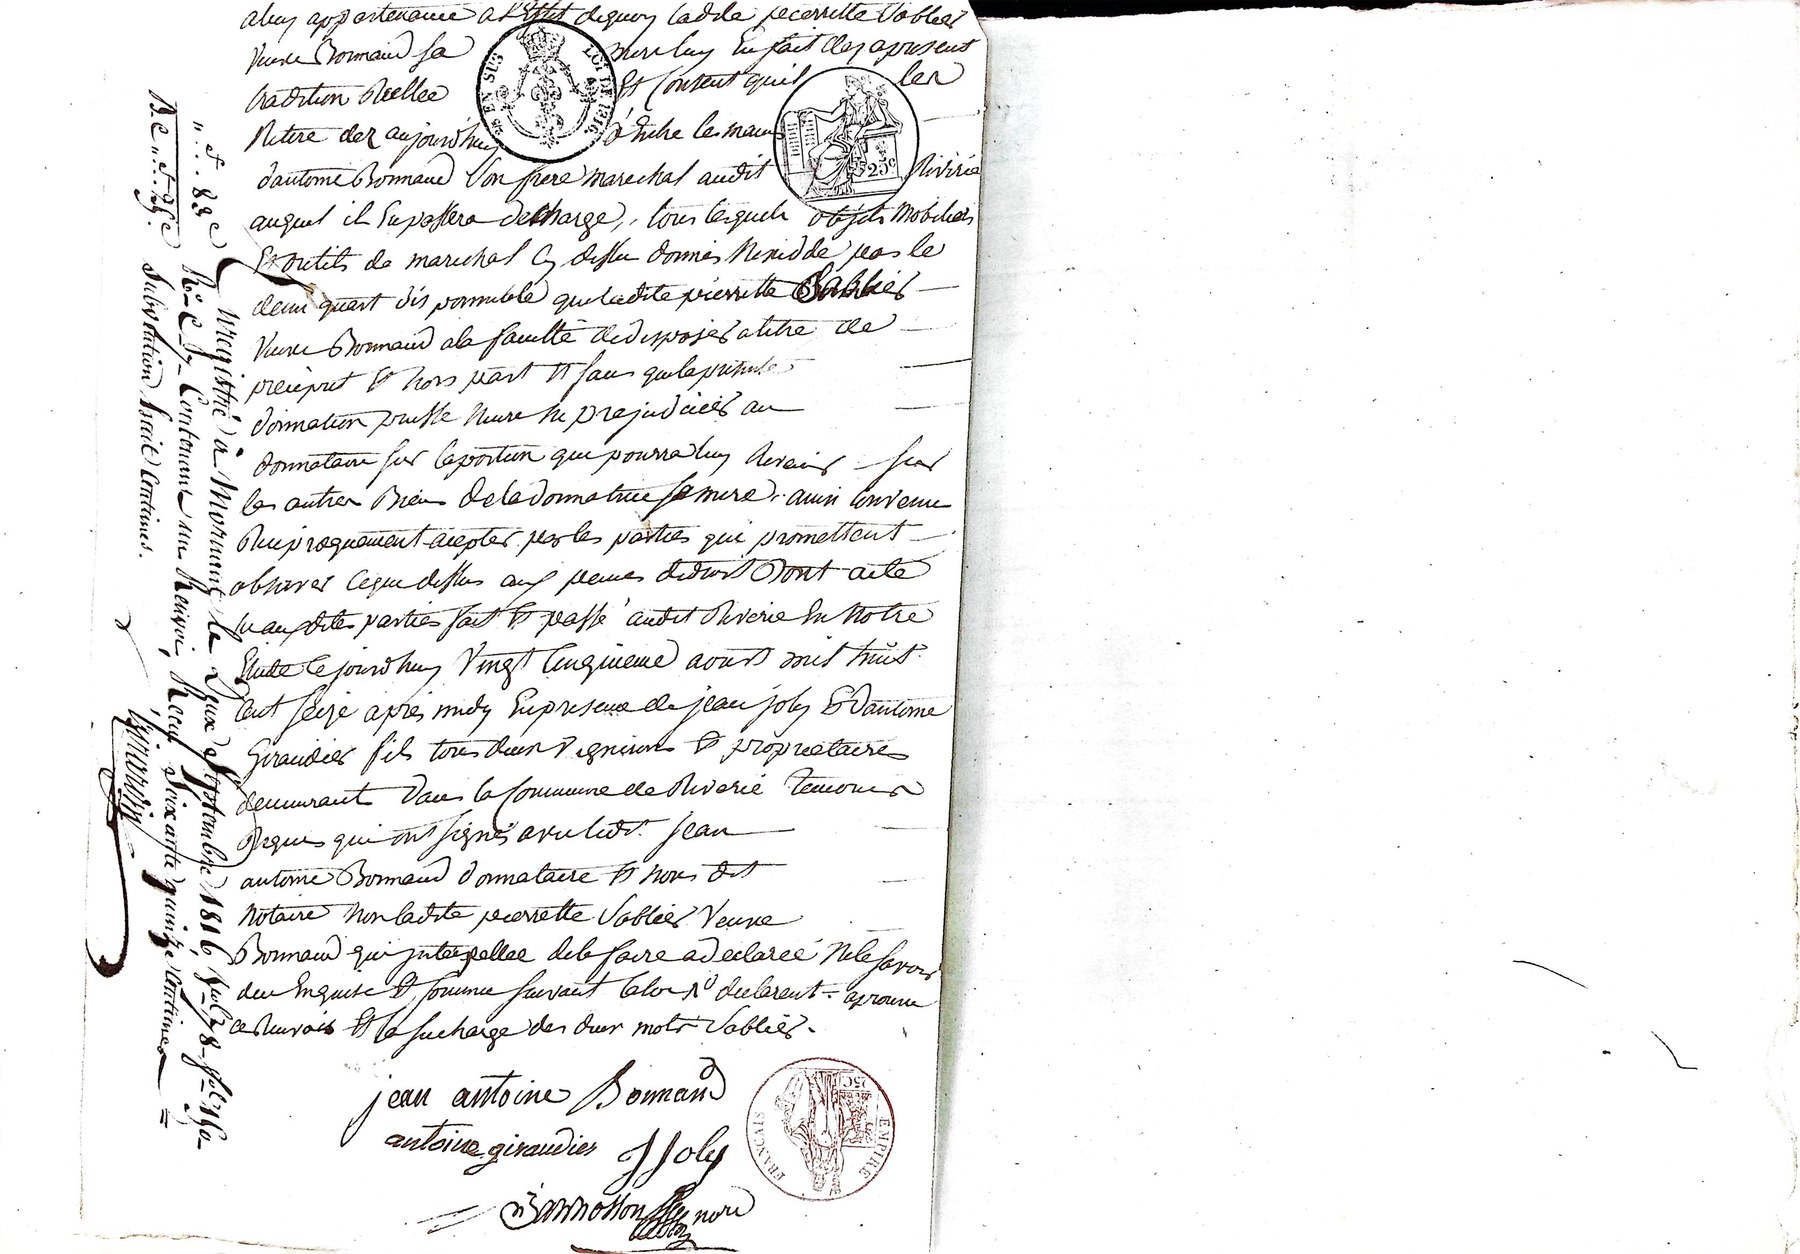 a luy appartenance a l'Effet dequoy ladite pierrette Sablier
Veuve Bonnaud sa mere luy En fait dez apresent
tradition Réelle Et Consent quil les
Retire dez aujourd'huy d'Entre les mains
dantoine Bonnaud son frere marechal audit Riverie
auquel il En passera decharge, tous lesquels objets mobiliers
Et outils de marechal Cy dessus donnés N'excedde pas le
quart disponnible que ladite pierrette Sablier
Veuve Bonnaud a la faculté de disposer a titre de
preciput Et hors part Et sans que la presente
donnation puisse Nuire Ni prejudicier au
donnataire sur la portion que pourra luy Revenir sur
les autres Biens de la donnatrice sa mere. ainsi convenu
Reciproquement acepter par les parties qui promettent
observer Ceque dessus aux peines de droit Dont acte
auxdites parties fait Et passé audit Riverie En Notre
Etude Cejourd'huy Vingt Cinquieme aoust mil huit
Cent seize après midy En presence de jean joly Et d'antoine
Giraudier fils tous deux Vignerons Et proprietaires
demeurant dans la Commune de Riverie temoins
Requis qui ont signés avec ledit jean
antoine Bonnaud donnataire Et nous dit
Notaire Non ladite pierrette Sablier Veuve
Bonnaud qui interpellée de le faire a declarée Ne le savoir
de ce Enquise Et sommée suivant la loi declarent. aprouvé
ce Renvoi Et la surcharge des deux mots Sablier.
jean antoine Bonnaud
antoine giraudier JJoly
Nore
EN SUS
LOI DE 1816
25c
EMPIRE
FRANÇAIS
25C
Enregistré à Mornant le deux Septembre 1816
Contenant un Renvoi, Reçu Soixante quinze Centimes
Subvention Sept Centimes.